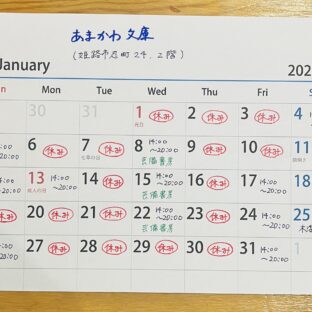 あまかわ文庫
(姫路市忍町24. 2階)
January 202
Mon Tue Wed Thu Fri S
30 31 1 休み 2 休み 3 休み 4
元日
6 休み 7 休み 8 14:00 〜20:00 9 休み 10 休み 11
20:00 七草の日 芸備書房 鏡開き
13 14:00 〜20:00 14 休み 15 14:00 〜20:00 16 休み 17 14:00 〜20:00 18
20:00 成人の日 芸備書房
20 休み 21 休み 22 14:00 〜20:00 23 休み 24 14:00 〜20:00 25
芸備書房
27 休み 28 休み 29 休み 30 休み 31 14:00 〜20:00 1